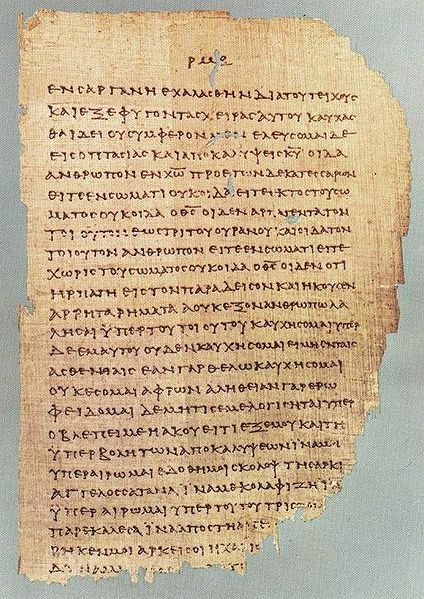 ΕΝΣΑΡΓΑΝΗΕΧΑΛΑΣΘΗΝΔΙΑΤΟΥΤΕΙΧΟΥΣ
ΚΑΙΕΞΕΦΥΓΟΝΤΑΣΧΕΙΡΑΣΑΥΤΟΥΚΑΥΧΑΣ
ΘΑΙΔΕΙΟΥΣΥΜΦΕΡΟΝΜΕΝΕΛΕΥΣΟΜΑΙΔΕ
ΕΙΣΟΠΤΑΣΙΑΣΚΑΙΑΠΟΚΑΛΥΨΕΙΣΚ̅Υ̅ΟΙΔΑ
ΑΝΘΡΩΠΟΝΕΝΧ̅Ω̅ΠΡΟΕΤΩΝΔΕΚΑΤΕΣΣΑΡΩΝ
ΕΙΤΕΕΝΣΩΜΑΤΙΟΥΚΟΙΔΑΕΙΤΕΕΚΤΟΣΤΟΥΣΩ
ΜΑΤΟΣΟΥΚΟΙΔΑΟΘ̅Σ̅ΟΙΔΕΝΑΡΠΑΓΕΝΤΑΤΟΝ
ΤΟΙΟΥΤΟΝΕΩΣΤΡΙΤΟΥΟΥΡΑΝΟΥΚΑΙΟΙΔΑΤΟΝ
ΤΟΙΟΥΤΟΝΑΝΘΡΩΠΟΝΕΙΤΕΕΝΣΩΜΑΤΙΕΙΤΕ
ΧΩΡΙΣΤΟΥΣΩΜΑΤΟΣΟΥΚΟΙΔΑΟΘ̅Σ̅ΟΙΔΕΝΟΤΙ
ΗΡΠΑΓΗΕΙΣΤΟΝΠΑΡΑΔΕΙΣΟΝΚΑΙΗΚΟΥΣΕΝ
ΑΡΡΗΤΑΡΗΜΑΤΑΑΟΥΚΕΞΟΝΑΝΘΡΩΠΩΛΑ
ΛΗΣΑΙΥΠΕΡΤΟΥΤΟΙΟΥΤΟΥΚΑΥΧΗΣΟΜΑΙΥΠΕΡ
ΔΕΕΜΑΥΤΟΥΟΥΔΕΝΚΑΥΧΗΣΟΜΑΙΕΙΜΗΕΝΤΑΙΣ
ΑΣΘΕΝΕΙΑΙΣΕΑΝΓΑΡΘΕΛΩΚΑΥΧΗΣΟΜΑΙ
ΟΥΚΕΣΟΜΑΙΑΦΡΩΝΑΛΗΘΕΙΑΝΓΑΡΕΡΩ
ΦΕΙΔΟΜΑΙΔΕΜΗΤΙΣΕΜΕΛΟΓΙΣΗΤΑΙΥΠΕΡ
ΟΒΛΕΠΕΙΜΕΗΑΚΟΥΕΙΤΙΕΞΕΜΟΥΚΑΙΤΗ
ΥΠΕΡΒΟΛΗΤΩΝΑΠΟΚΑΛΥΨΕΩΝΙΝΑΜΗ
ΥΠΕΡΑΙΡΩΜΑΙΕΔΟΘΗΜΟΙΣΚΟΛΟΨΤΗΣΑΡΚΙ
ΑΓΓΕΛΟΣΣΑΤΑΝΑΪΝΑΜΕΚΟΛΑΦΙΖΗΪ
ΥΠΕΡΑΙΡΩΜΑΙΥΠΕΡΤΟΥΤΟΥΤΡΙΣ
ΠΑΡΕΚΑΛΕΣΑΪΝΑΑΠΟΣΤΗ
ΡΗΚΕΝΜΟΙΑΡΚΕΙΣΟΙΗΧΑΡΙΣ